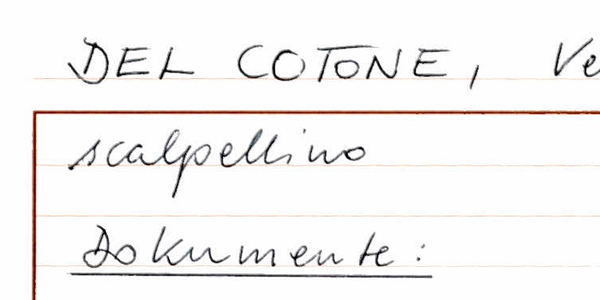 DEL COTONE, Ve
scalpellino
Dokumente: